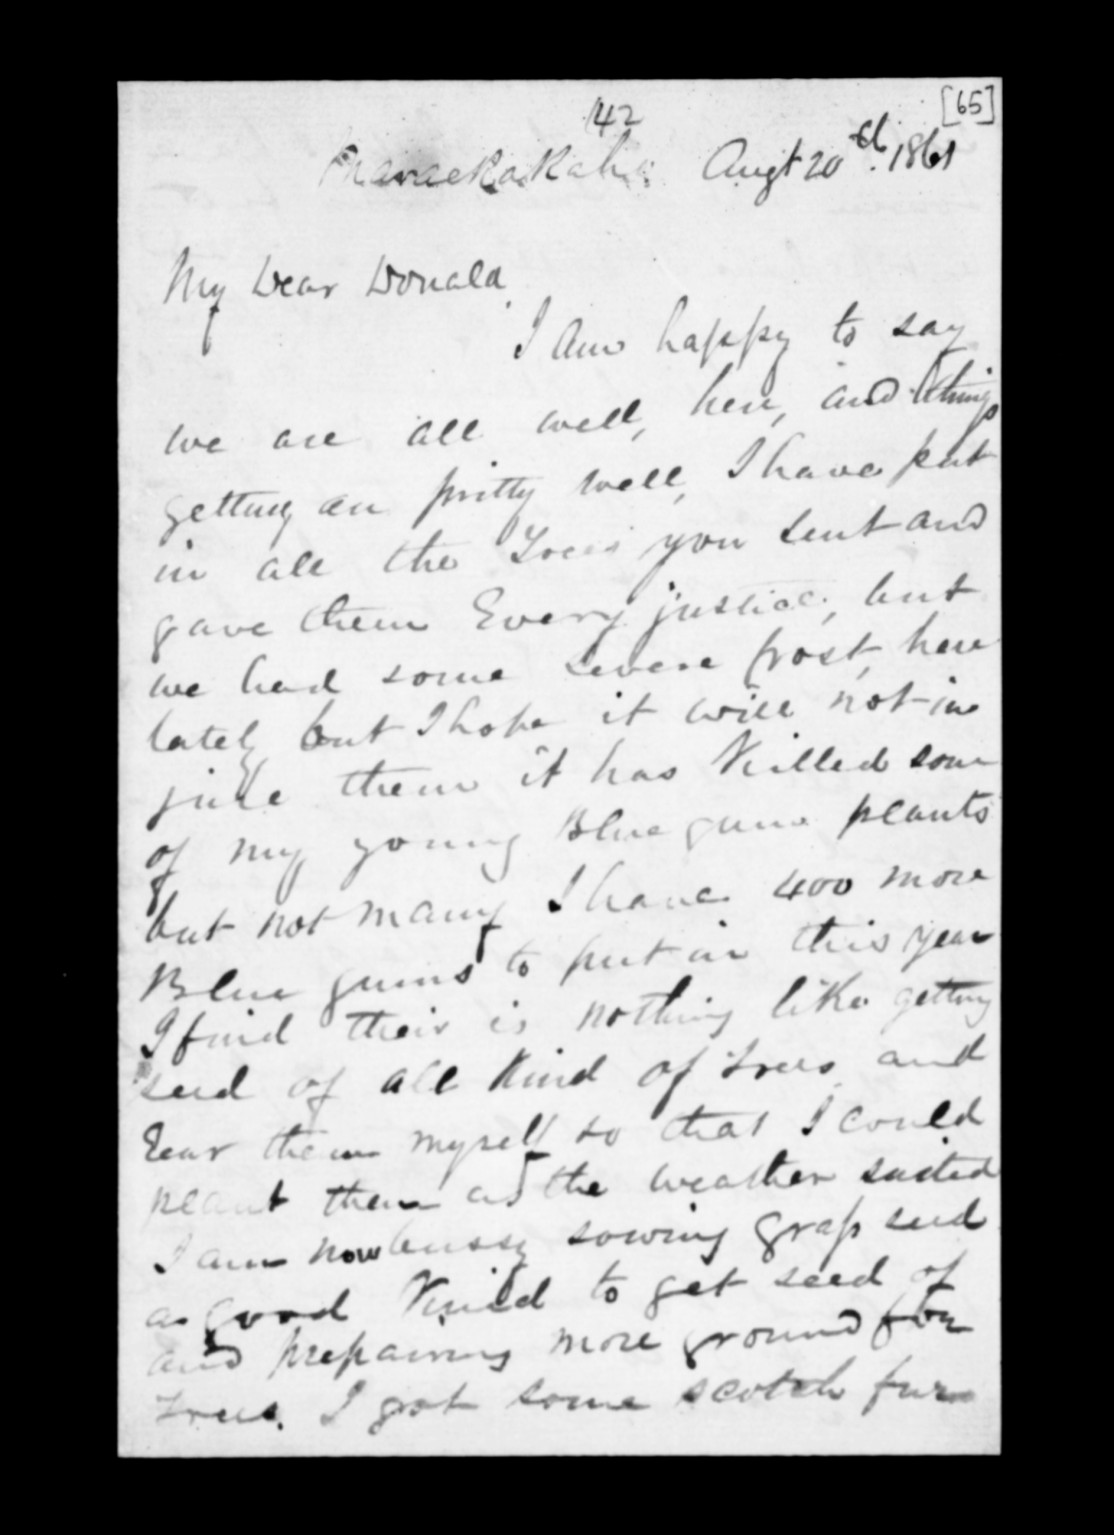 42
[65]
Maraekakaho Augt 20th. 1861
My Dear Donald
I am happy to say
we are all well, here, and things
getting on pritty well, I have put
in all the Trees you sent and
gave them Every justice, but
we had some severe frost, here
lately but I hope it will not in
jure them it has Killed som
of my young Blue gum plants
but not many I have 400 more
Blue gums to put in this year
I find their is nothing like getting
seed of all Kind of trees and
Rear them myself so that I could
plant them as the weather suited
I am now bussy sowing grass seed
a good Kind to get seed of
and prepairing more ground for
trees. I got some scotch furs